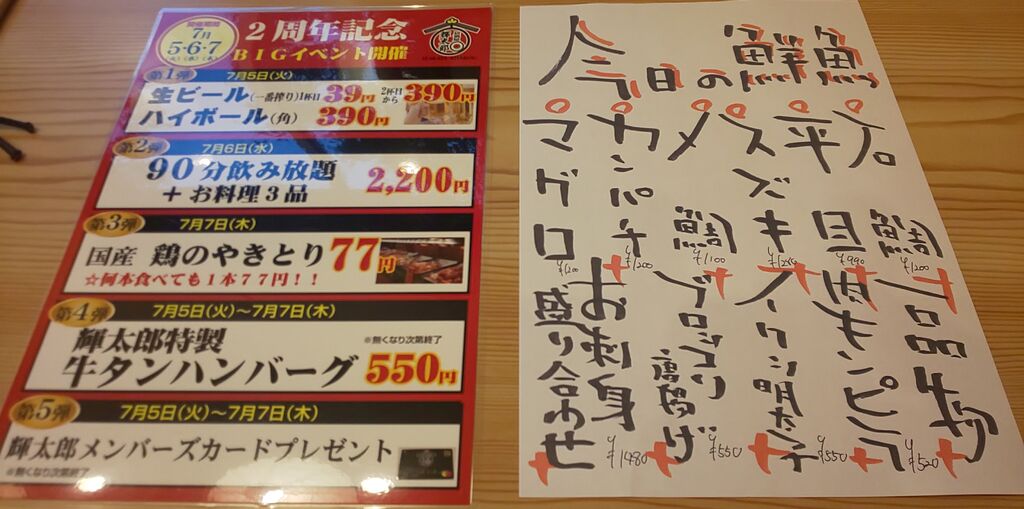 開催期間
7月
5・6・7
火)(水)(木)
2周年記念
BIGイベント開催
輝太郎
第1弾
7月5日(火)
生ビール(一番搾り)1杯目39円 2杯目から390円
ハイボール(角) 390円
第2弾
7月6日(水)
90分飲み放題
+お料理3品
2,200円
第3弾
7月7日(木)
国産 鶏のやきとり 77円
☆何本食べても1本77円!!
第4弾
7月5日(火)〜7月7日(木)
輝太郎特製
※無くなり次第終了
牛タンハンバーグ 550円
第5弾
7月5日(火)〜7月7日(木)
輝太郎メンバーズカードプレゼント
※無くなり次第終了
今日の鮮魚
石鯛 ¥1200
平目 ¥990
スズキ
メ鯛 ¥1100
カンパチ ¥1200
マグロ
一品物
肉キンピラ ¥520
イクラ明太子 ¥550
ブロッコリ唐揚げ ¥550
お刺身
盛り合わせ ¥1480